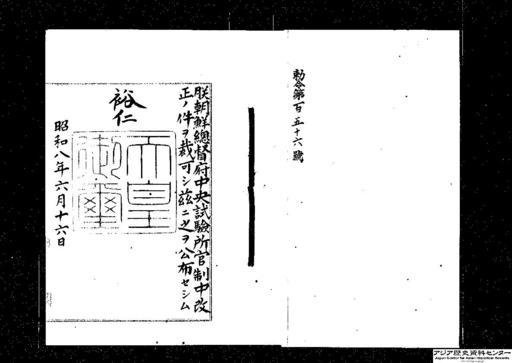 勅令第百五十六號
朕朝鮮總督府中央試驗所官制中改
正ノ件ヲ裁可シ茲ニ之ヲ公布セシム
裕仁
天皇御璽
昭和八年六月十六日
アジア歴史資料センター
Japan Center for Asian Historical Records